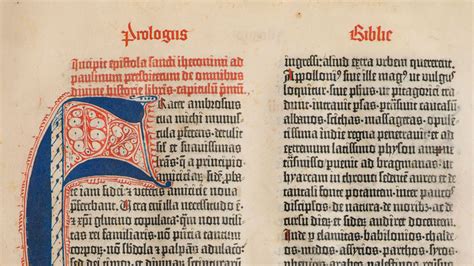 Prologus
Biblie
Incipit epistola sancti iheronimi ad
paulinum presbiterum de omnibus
divine historie libris· capitulū pmū
Frater ambrosius
tua michi munuscula
pferens· detulit
sił et suavissimas
lrās· q̄ a principio
amicicia
fidei
pferebant
necessitudo ē·
et xp̄i glutino copulata: quā non
utilitas rei familiaris· nō presentia tantū
corpor̄· nō sbdola et palpās adulacō·
sed dei timor· et divinar̄ scripturar̄
ingressi: aliud extra urbem quererent.
Apolloniꝰ· sive ille magꝰ ut vulgꝰ
loquitur· sive phūs· ut pitagorici tra-
dunt· intravit psas· pt̄nsivit caucasū·
albanos· scithas· massagetas· opulē-
tissima indie regna penetravit: et ad
extremum latissimo physon amne
transmisso puenit ad bragmanas: ut
hyarcam in throno
tantali fonte
natura
cursu dieꝝ et sideꝝ audiret docentem.
Inde p elamitas· babilonios· chalde-
os· medos· assirios· parthos· syros·